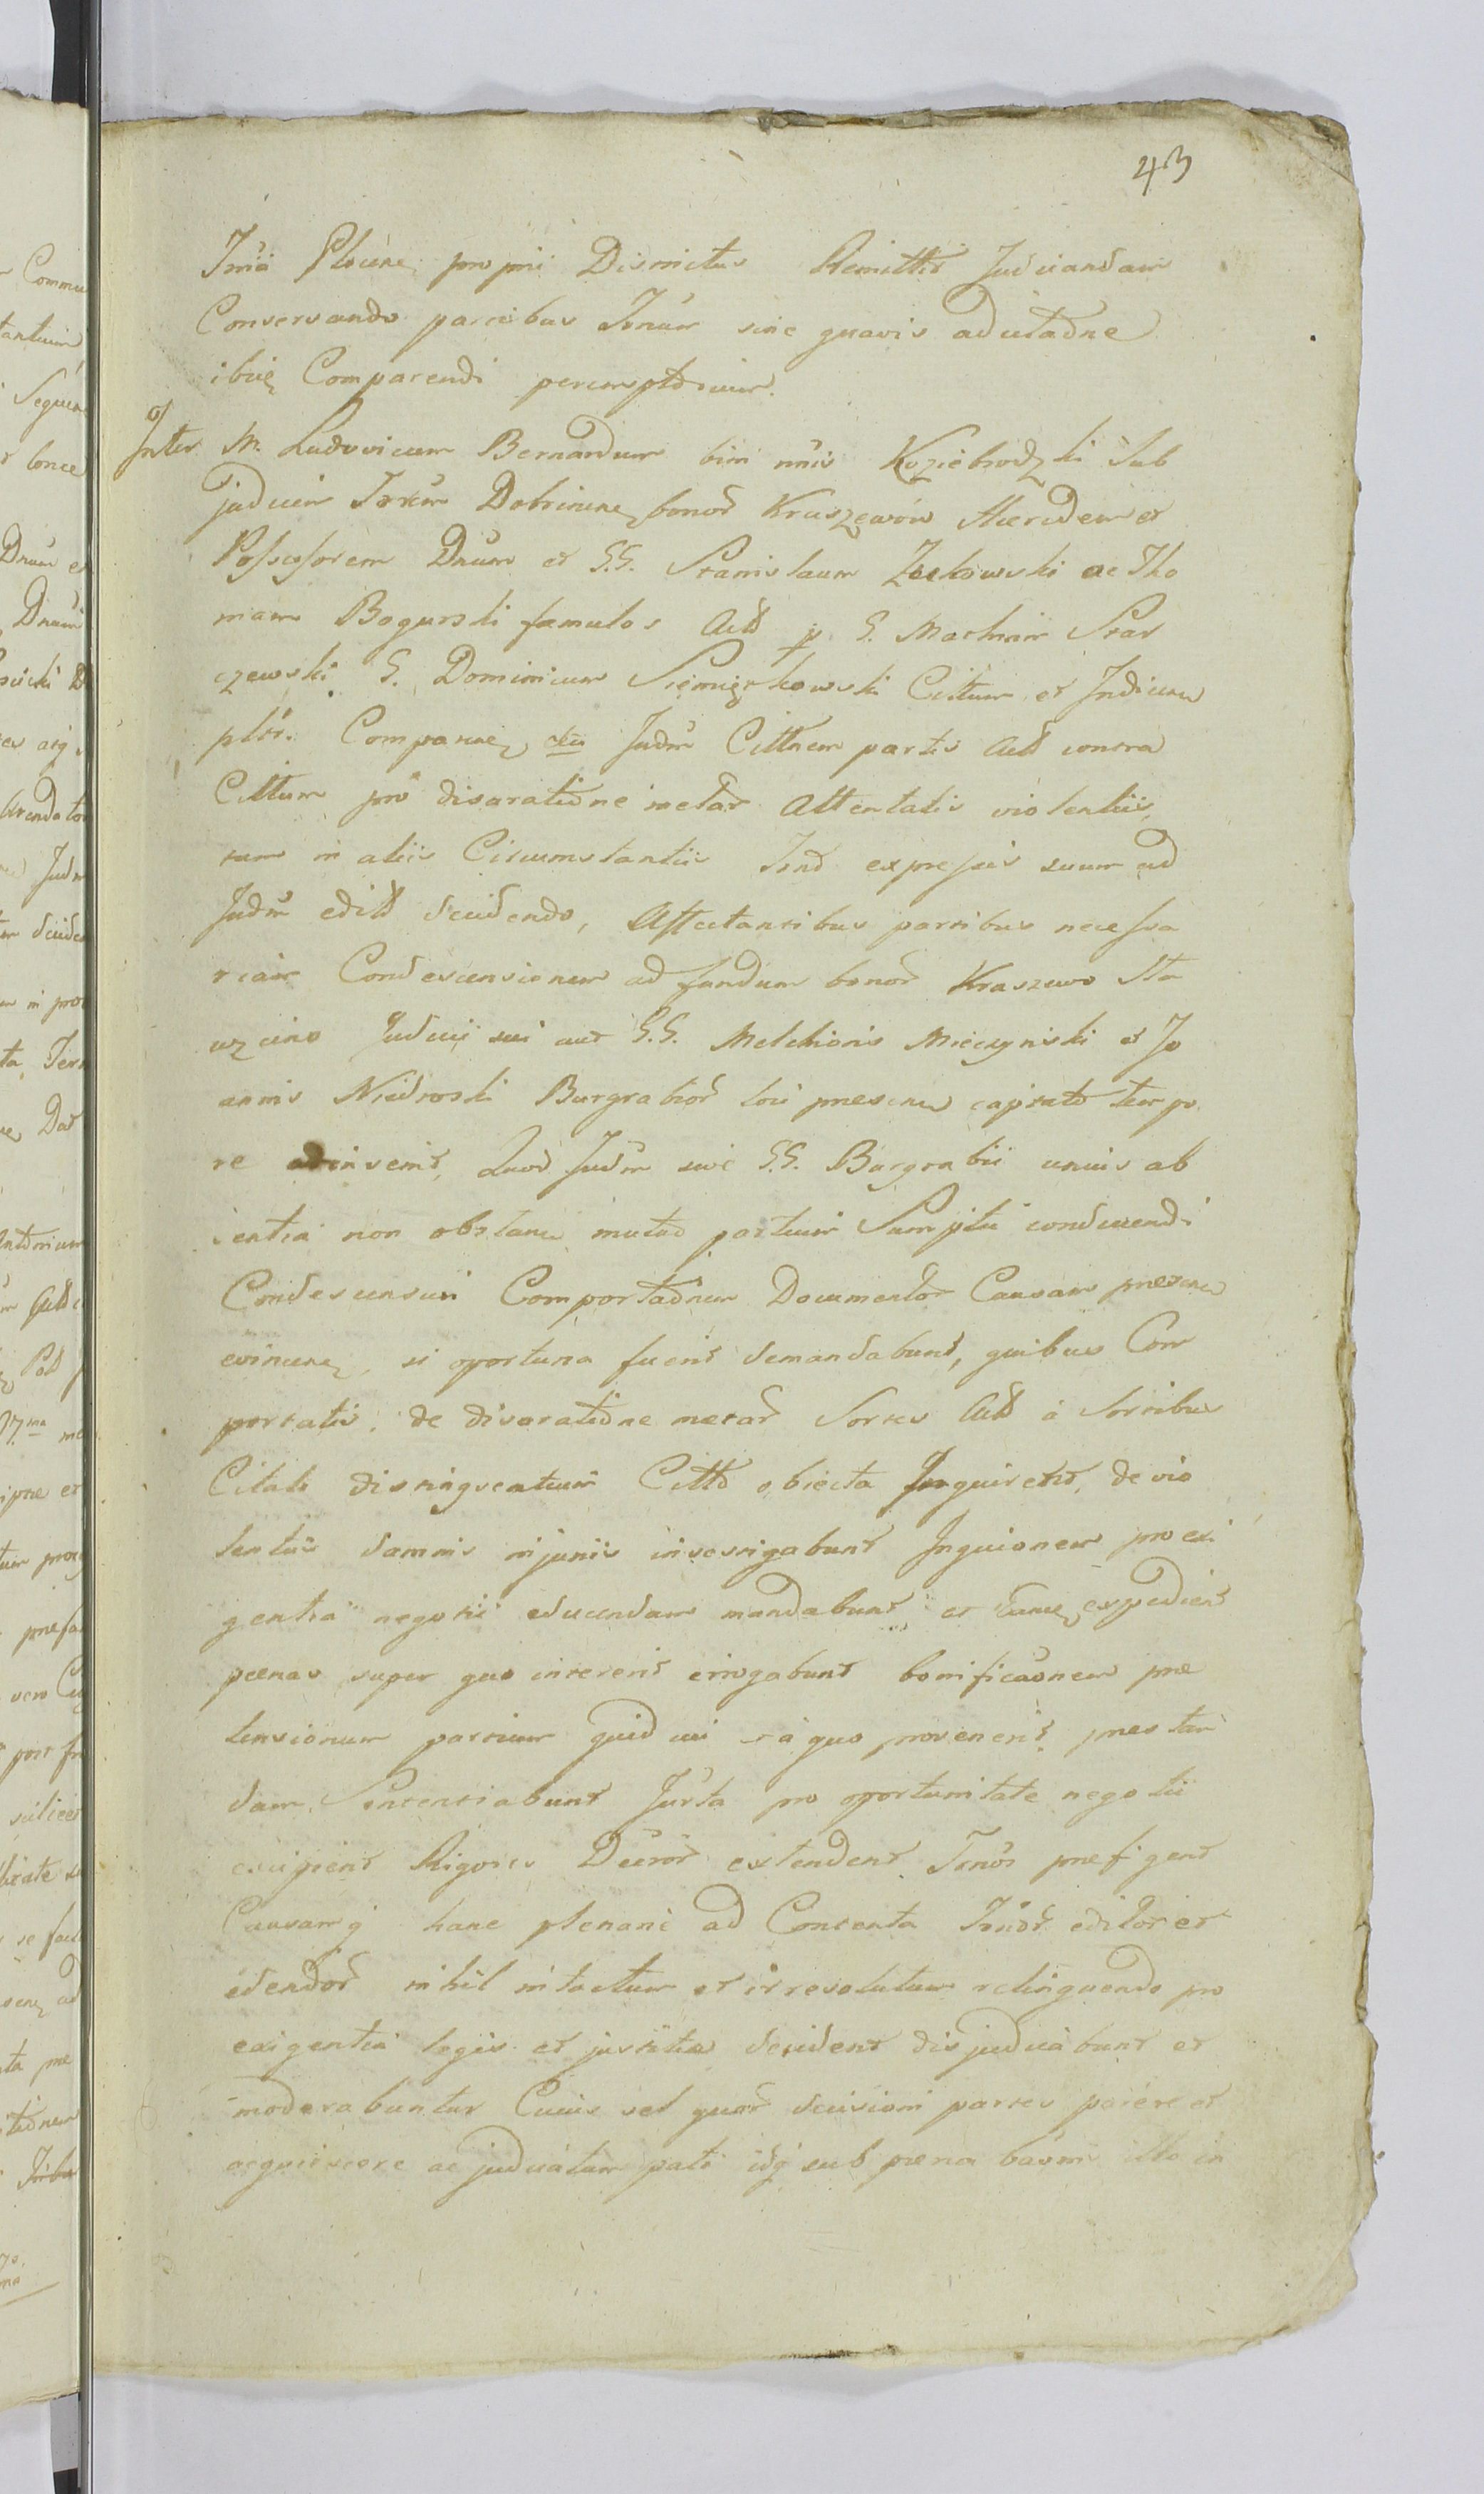 43
Trriã Plocen̄ proprii Districtus Remittit Judicandam
Conservando partibus Trnūm sine quavis adcitãõne
ibiq̨ Comparendi peremptorium.
Inter M. Ludovicum Bernardum bin: nniis Koziebrodzki Sub
judicem Trrēm Dobrinen̨ bonor̃ Kraszewów Hæredem et
Possessorem Dnūm et G.G. Stanislaum Zeckowski ac Tho
mam Bogurski famulos Act̃ p. G. Mathiam Stas
czewski G. Dominicum Siemiątkowski Citt̃um et Indicen̄
pltr̃. Comparen̨ Judm̃ Citt̃nem partis Act̃ contra
Citt̃um pro disaratiõne metar̃ Attentatis violentiis,
tum in aliis Circumstantiis Trnõ expressis suum ad
Judm̃ edit̃ decidendo, Affectantibus partibus necessa
riam Condescensionem ad fundum bonor̃ Kraszewo Sta
wzcino Judicii sui aut G.G. Melchioris Mieczynski et Jo
annis Niedroski Burgrabior̃ loci præsen̄ capitato tempo
re adinvenit, Quod Judm̃ sive G.G. Burgrabii unius ab
sentia non obstan̄ mutuo partium Sumptu conducendi
Condescensuri Comportaõnem Documentor̃ Causam præsen̄
evincen̨, si oportuna fuerit demandabunt, quibus Com
portatis, de disaratiõne metar̃ Sortes Act̃ à Sortibus
Citati distinguentium Citt̃õ objecta Inquirent, de vio
lentiis damnis injuriis investigabunt Inquiõnem pro exi
gentia negotii educendam mandabunt, et eamq̨ expedient
pœnas super quo intererit irrogabunt bonificaõnem præ
tensionum partium quid cui et à quo provenerit, præstan
dam Sententiabunt Jurta pro oportunitate negotii
excipient Rigores Decrõr̃ extendent Trnõs præfigent
Causamq̨ hanc plenarie ad Contenta Trnõr̃ editor̃ et
edendor̃ nihil intactum et irresolutum relinquendo pro
exigentia legis et justitiæ decident disjudicabunt et
moderabuntur Cuius vel quor̃ decisioni partes parere et
acquiescere ac judicatum pati idq̨ sub pœna bañni illo in